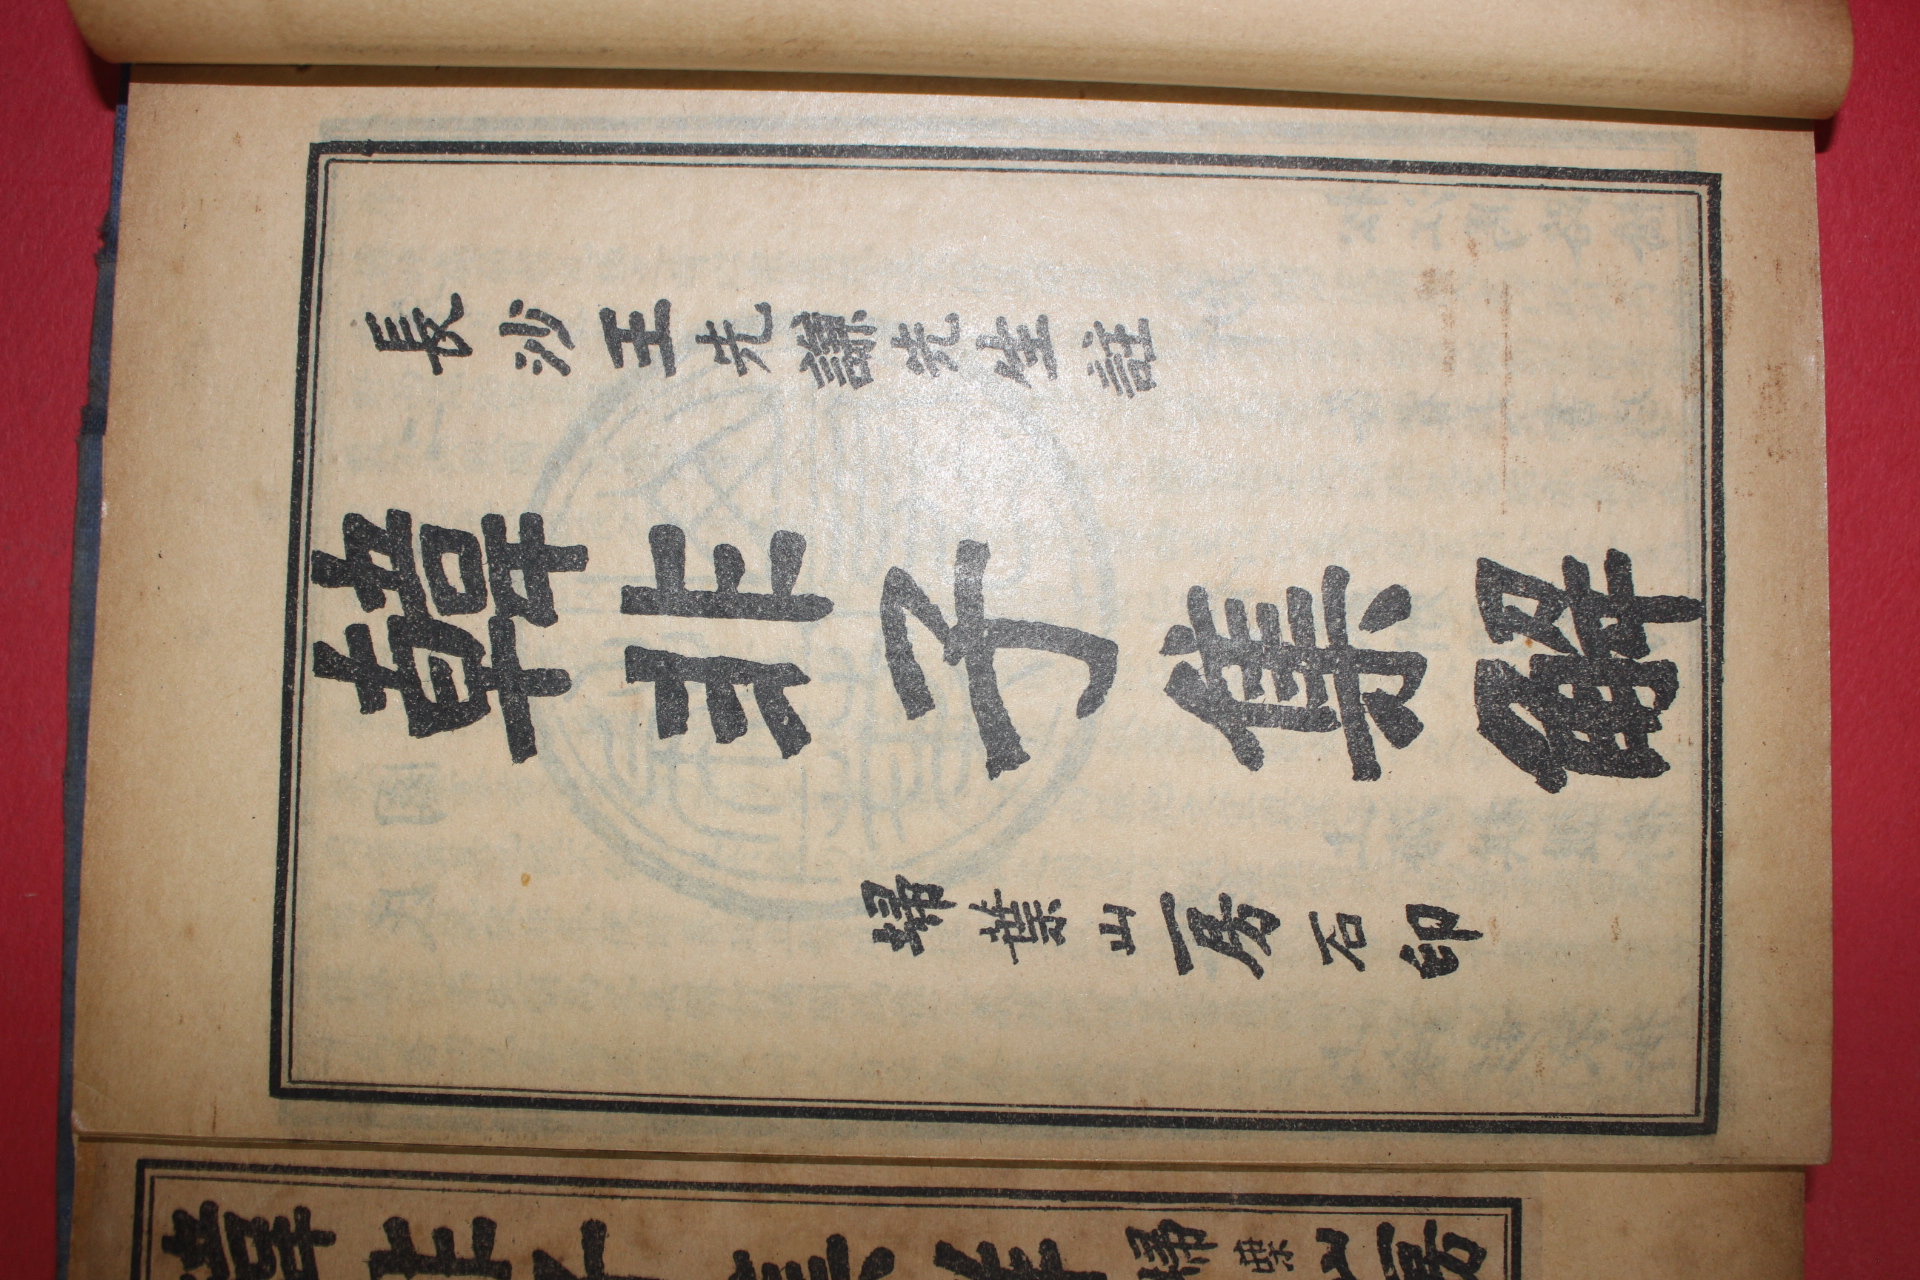 長沙王先謙先生註
韓非子集解
埽葉山房石印
韓非子集解
埽葉山房